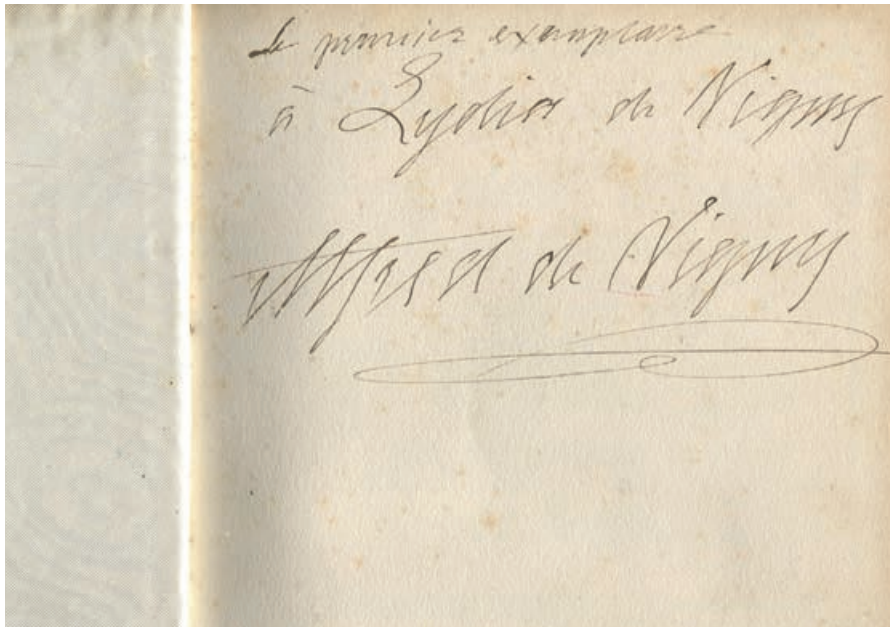 Le premier exemplaire
à Lydia de Vigny
Alfred de Vigny